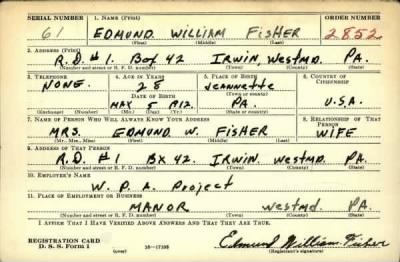 SERIAL NUMBER 1. NAME (Print) ORDER NUMBER
61 EDMUND WILLIAM FISHER 2852
(First) (Middle) (Last)
2. ADDRESS (Print)
R.D. #1. Box 42 IRWIN, Westmd. PA.
(Number and street or R. F. D. number) (Town) (County) (State)
3. TELEPHONE 4. AGE IN YEARS 5. PLACE OF BIRTH 6. COUNTRY OF CITIZENSHIP
NONE. 28 Jeannette
DATE OF BIRTH (Town or county)
MAY 5 1912. PA. U.S.A.
(Exchange) (Number) (Mo.) (Day) (Yr.) (State or country)
7. NAME OF PERSON WHO WILL ALWAYS KNOW YOUR ADDRESS 8. RELATIONSHIP OF THAT PERSON
MRS. EDMUND W. FISHER WIFE
(Mr., Mrs., Miss) (First) (Middle) (Last)
9. ADDRESS OF THAT PERSON
R.D. #1 Bx 42. IRWIN. Westmd. PA.
(Number and street or R. F. D. number) (Town) (County) (State)
10. EMPLOYER'S NAME
W. P. A. Project
11. PLACE OF EMPLOYMENT OR BUSINESS
MANOR Westmd. PA.
(Number and street or R. F. D. number) (Town) (County) (State)
I AFFIRM THAT I HAVE VERIFIED ABOVE ANSWERS AND THAT THEY ARE TRUE.
REGISTRATION CARD
D. S. S. Form 1 (over) 16—17105 Edmund William Fisher
(Registrant's signature)